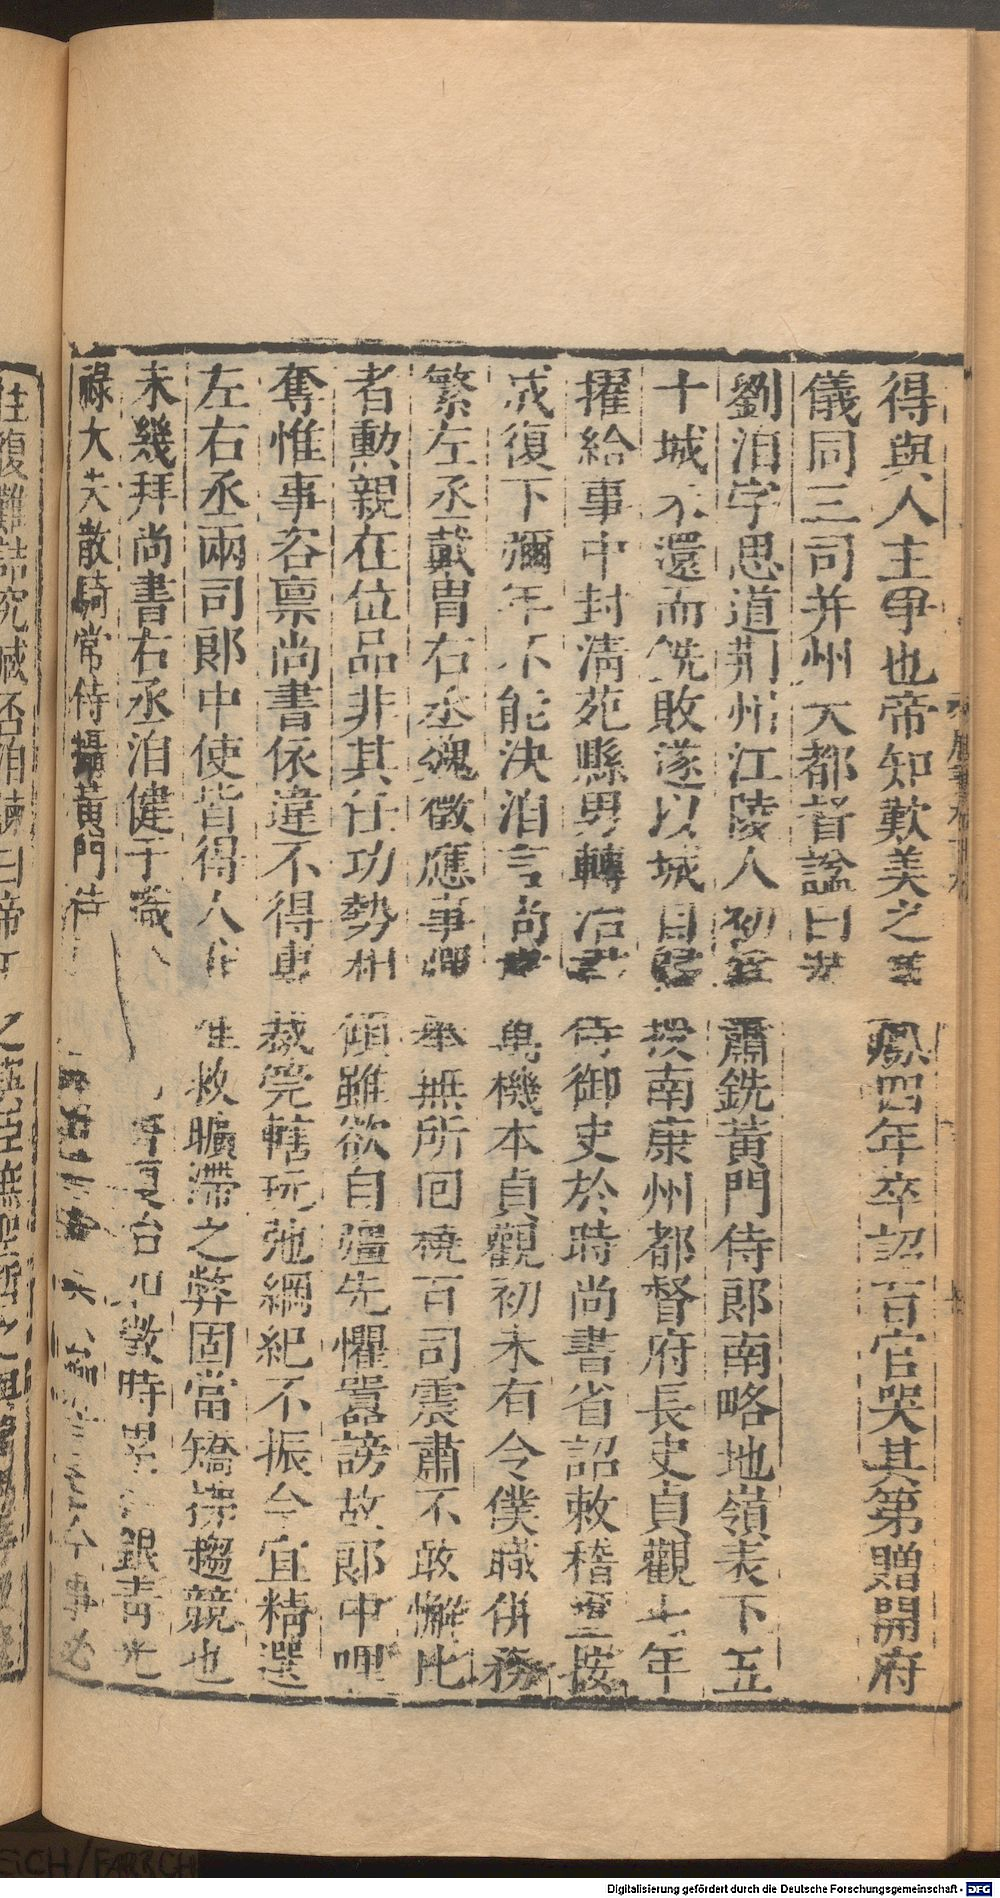 得與人主爭也帝知歎美之 鳳四年卒詔百官哭其第贈開府
儀同三司并州大都督諡曰
劉洎字思道荊州江陵人初 蕭銑黃門侍郎南略地嶺表下五
十城不還而銑敗遂以城自 授南康州都督府長史貞觀七年
擢給事中封清苑縣男轉治書侍御史於時尚書省詔敕稽壅按
成復下彌年不能決洎言尚 萬機本貞觀初未有令僕職併務
繁左丞戴胄右丞魏徵應事彈舉無所回橈百司震肅不敢懈比
者勳親在位品非其任功勢相傾雖欲自彊先懼嚻謗故郎中
奪惟事咨稟尚書依違不得 裁筦轄玩弛綱紀不振今宜精選
左右丞兩司郎中使皆得人 惟救曠滯之弊固當矯 趨競也
未幾拜尚書右丞洎健于職 台 數時累 銀青光
祿大夫散騎常侍攝黃門侍 事必
往復難詰究臧否洎諫曰帝 之
Digitalisierung gefördert durch die Deutsche Forschungsgemeinschaft - DFG